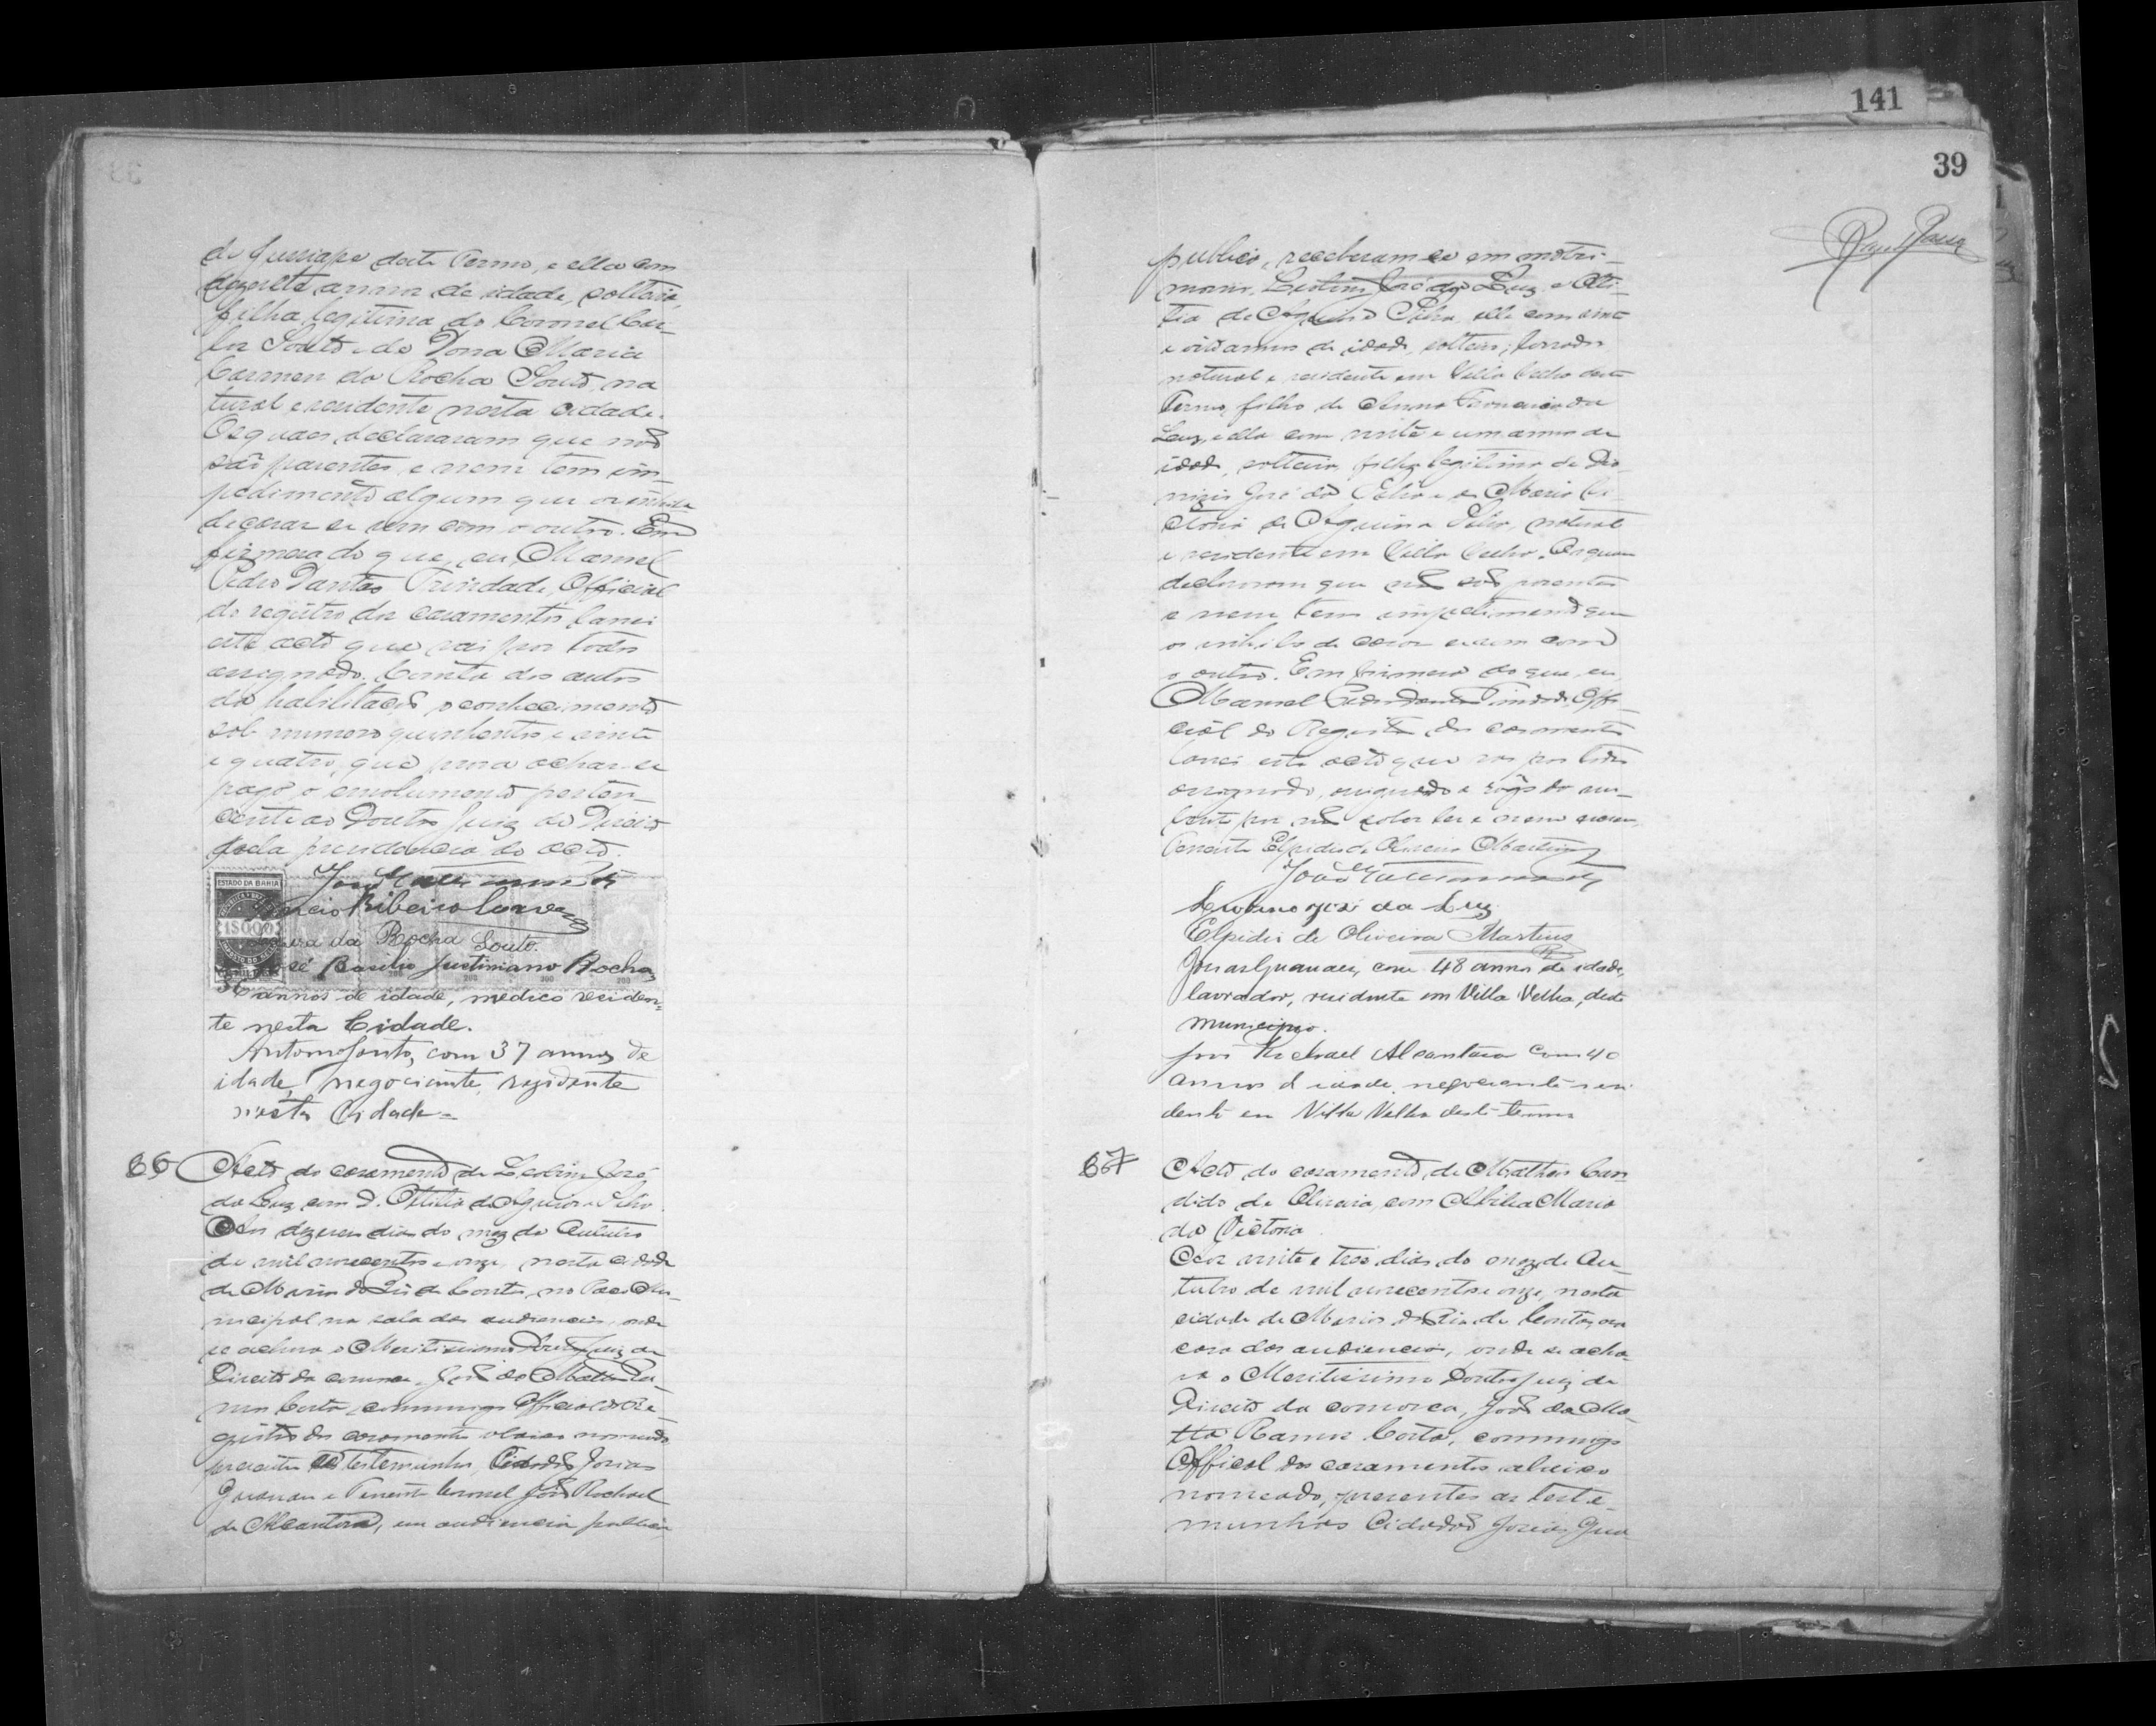 141
39
de Jussiape deste Termo, e ella com
dezasete annos de idade, solteira,
filha legitima do Coronel Car-
los Souto e de Dona Maria
Carmen da Rocha Souto, na
tural e residente nesta cidade.
Os quaes declararam que não
são parentes e nem tem im-
pedimento algum que os inhiba
de casar se um com o outro. Em
firmesa do que, eu, Manoel
Pedro Dantas Trindade, Official
do registro dos casamentos lancei
este acto que vai por todos
assignado. Consta dos autos
da habilitação o conhecimento
sob numero quinhentos e vinte
e quatro, que prova achar-se
pago o emolumento perten-
cente ao Doutor Juiz de Direito
pela presidencia do acto.
ESTADO DA BAHIA
1$000
Ribeiro
da Rocha Souto.
José Basilio Justiniano Rocha,
36 annos de idade, medico residen-
te nesta Cidade.
Antonio Souto, com 37 annos de
idade, negociante, rezidente
nesta Cidade
66 Acto do casamento de José
da Luz com D. Ottilia de Aguiar e Silva.
Aos dezeseis dias do mez de Outubro
de mil novecentos e onze, nesta cidade
de Minas do Rio de Contas, no Paço Mu-
nicipal na sala das audiencias, onde
se achava o Meritissimo Doutor Juiz de
Direito da comarca, João da Matta Ra-
mos Costa, commigo Official do Re-
gistro dos casamentos abaixo nomeado
presentes as testemunhas, Cidadão Josias
Guanaes e Tenente Coronel José Rochael
de Alcantara, em audiencia publica
publico, receberam se em matri-
monio, José da Luz e Oti-
lia de Silva, elle com vinte
e oito annos de idade, solteiro, lavrador
natural e residente em Villa Velha deste
Termo, filho de Anna da
Luz, e ella com vinte e um annos de
idade, solteira, filha legitima de Dio-
nizio José da Silva e de Maria
de Silva, natural
e residente em Villa Velha. Os quaes
declararam que não são parentes
e nem tem impedimento que
os inhiba de casar se um com
o outro. Em firmesa do que, eu
Manoel Pedro Dantas Trindade, Offi-
cial do Registro dos casamentos
lancei este acto que vai por todos
assignado, assignando a rogo da nu-
bente por não saber ler e nem escrever,
Tenente Elpidio de Oliveira Martins
José da Luz
Elpidio de Oliveira Martins
Josias Guanaes, com 48 annos de idade,
lavrador, residente em Villa Velha, deste
municipio.
José Rochael Alcantara com 40
annos d idade, negociante resi
dente em Villa Velha deste termo
67 Acto do casamento de Matheus Can-
dido de Oliveira, com Abilia Maria
da Victoria
Aos vinte e tres dias do mez de Ou-
tubro de mil novecentos e onze, nesta
cidade de Minas do Rio de Contas, na
casa das audiencias, onde se acha-
va o Meritissimo Doutor Juiz de
Direito da comarca, João da Ma-
tta Ramos Costa, commigo
Official dos casamentos abaixo
nomeado, presentes as teste-
munhas Cidadão Josias Gua